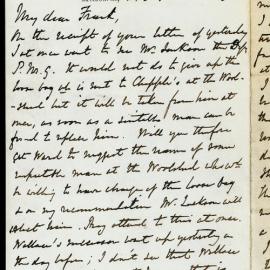 My dear Frank,
On the receipt of your letter of yesterday
I at once went to see Mr. Jackson the Dy.
P. M. G. It would not do to give up the
loose bag it is sent to Chipple's at the Wool-
shed but it will be taken from him at
once, as soon as a suitable man can be
found to replace him. Will you therefore
get Ward to suggest the name of some
respectable man at the Woolshed who wd.
be willing to have charge of the loose bag
& on my recommendation Mr. Jackson will
appoint him. Pray attend to this at once.
Wallace's successor went up yesterday or
the day before; I don't see that Wallace